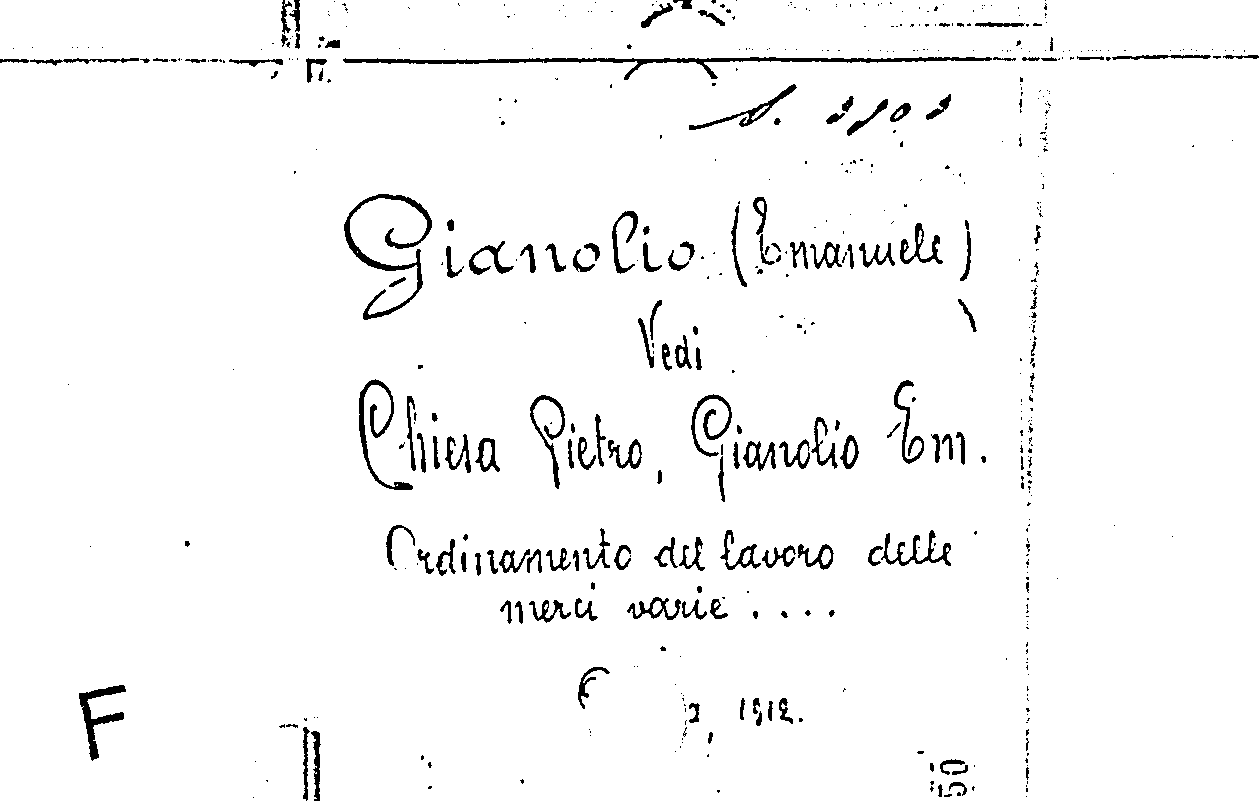 Gianolio (Emanuele)
Vedi
Chiesa Pietro, Gianolio Em.
Ordinamento del lavoro delle
merci varie....
, 1912.
F
50